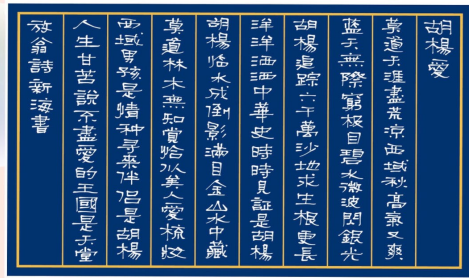 胡楊愛
莫道天涯盡荒涼西域秋高氣又爽
藍天無際窮極目碧水微波閃銀光
胡楊追踪六千萬沙地求生根更長
洋洋洒洒中華史時時見証是胡楊
胡楊临水成倒影滿目金山水中藏
莫道林木無知賞恰似美人愛梳妝
西域男孩是情种寻來伴侣是胡楊
人生甘苦說不盡愛的王國是天堂
放翁詩新海書